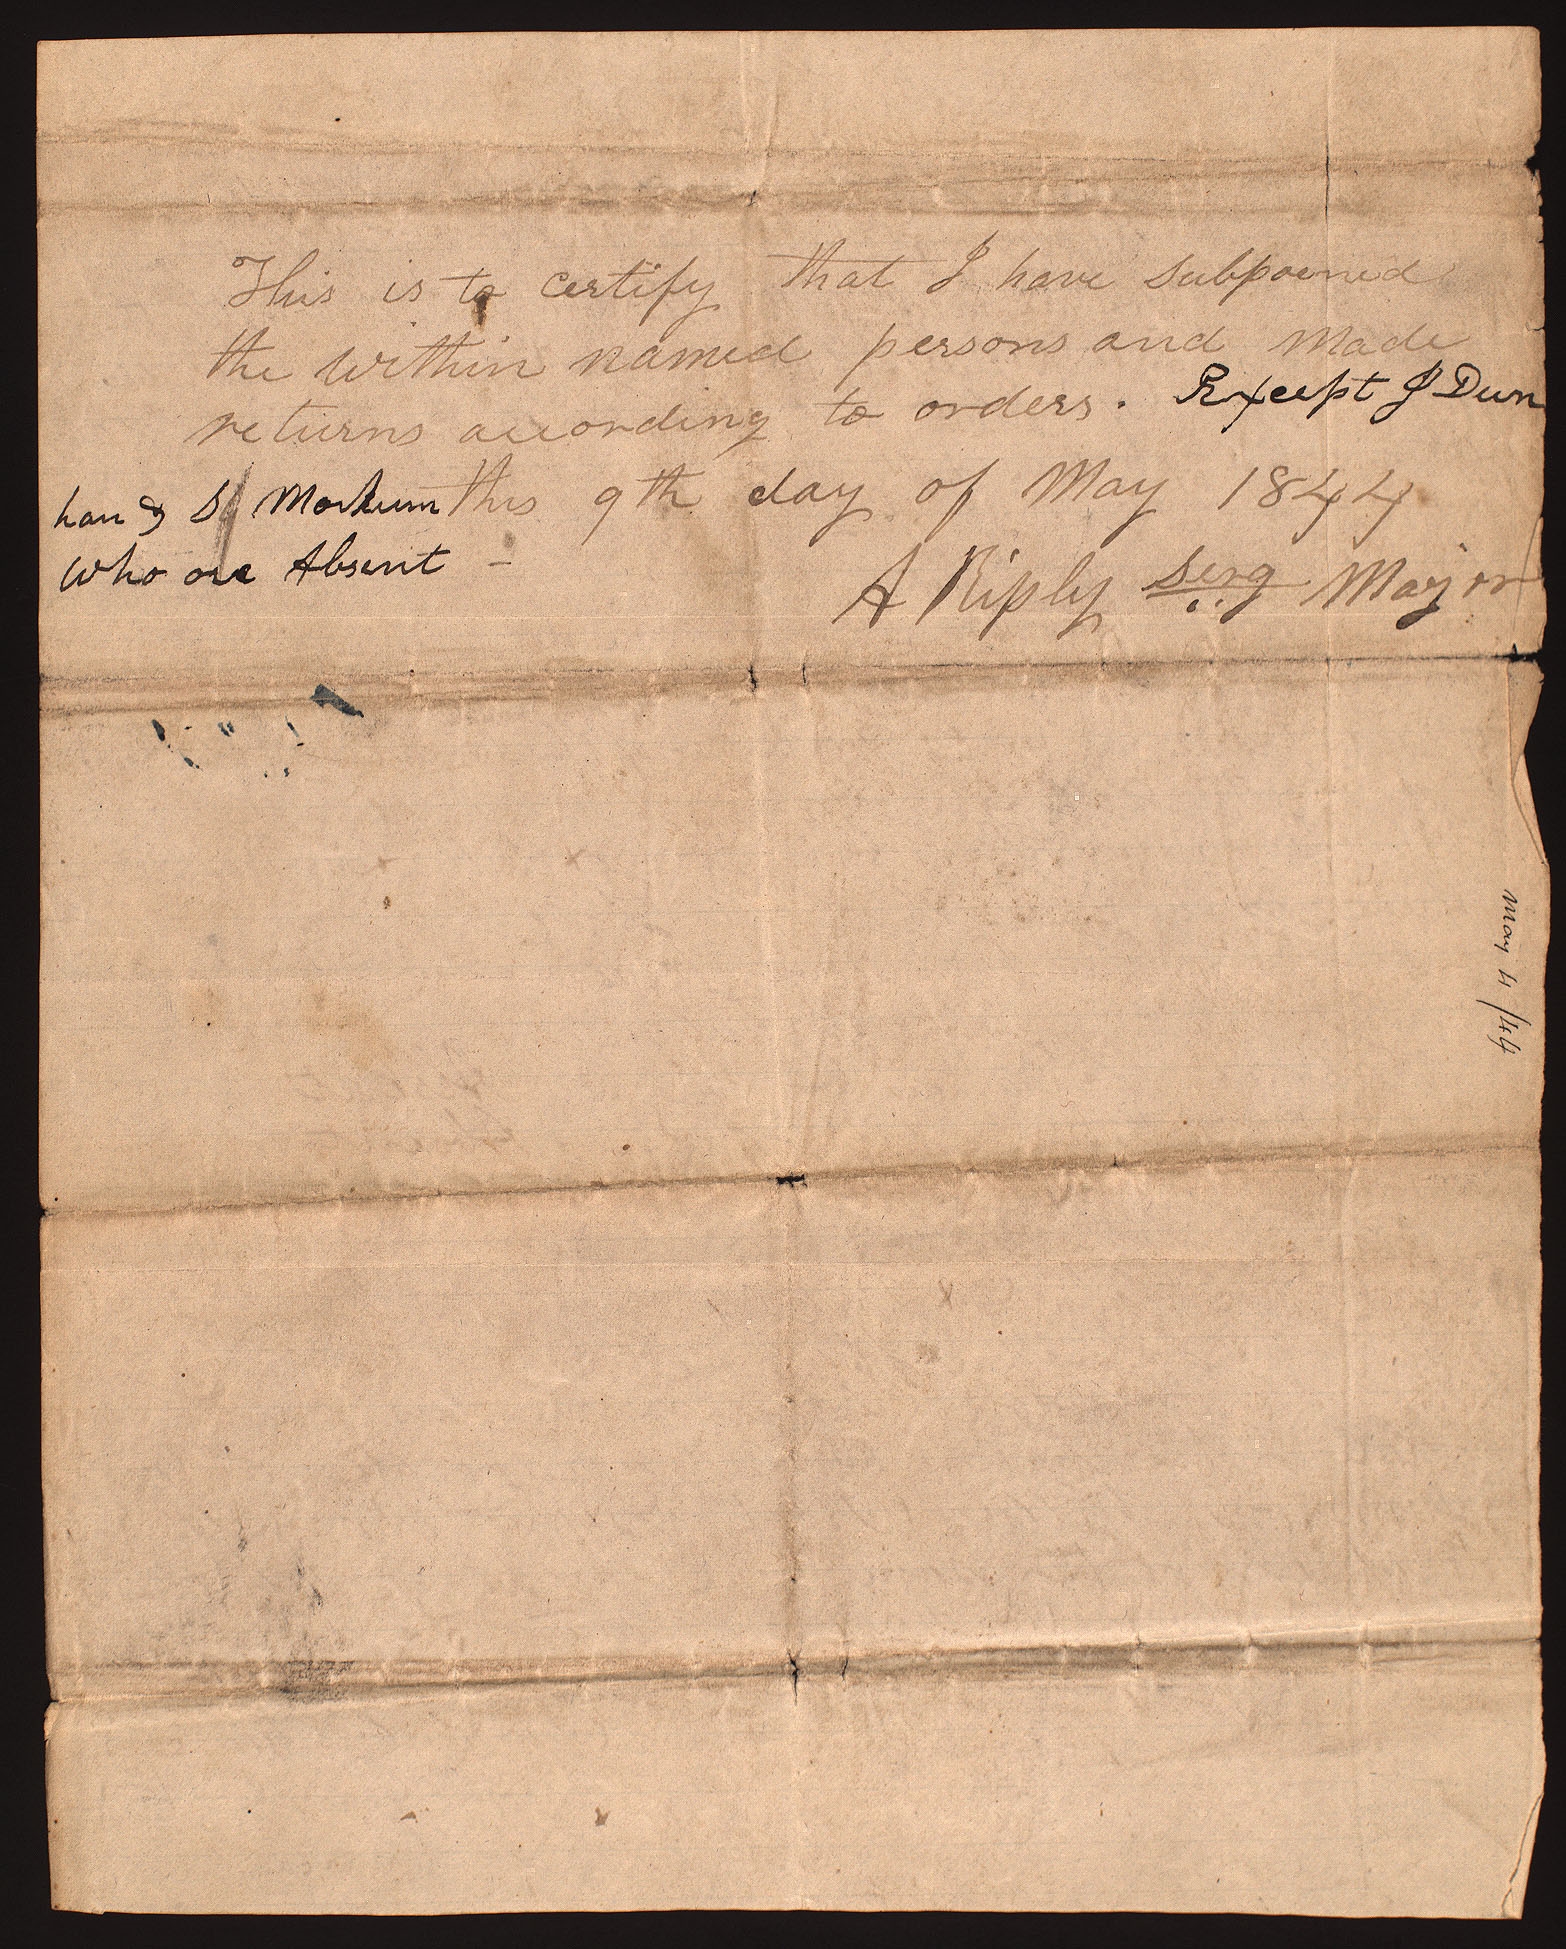 This is to certify that I have subpoened
the within named persons and made
returns according to orders. Except J Dun
han & S Markum this 9th day of May 1844
who are Absent –
A Riply Serg Major
May 4/44